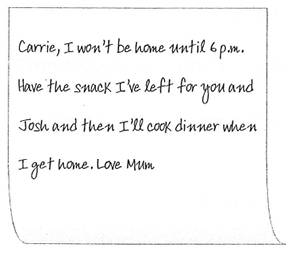 Carrie, I won't be home until 6 p.m.
Have the snack I've left for you and
Josh and then I'll cook dinner when
I get home. Love Mum